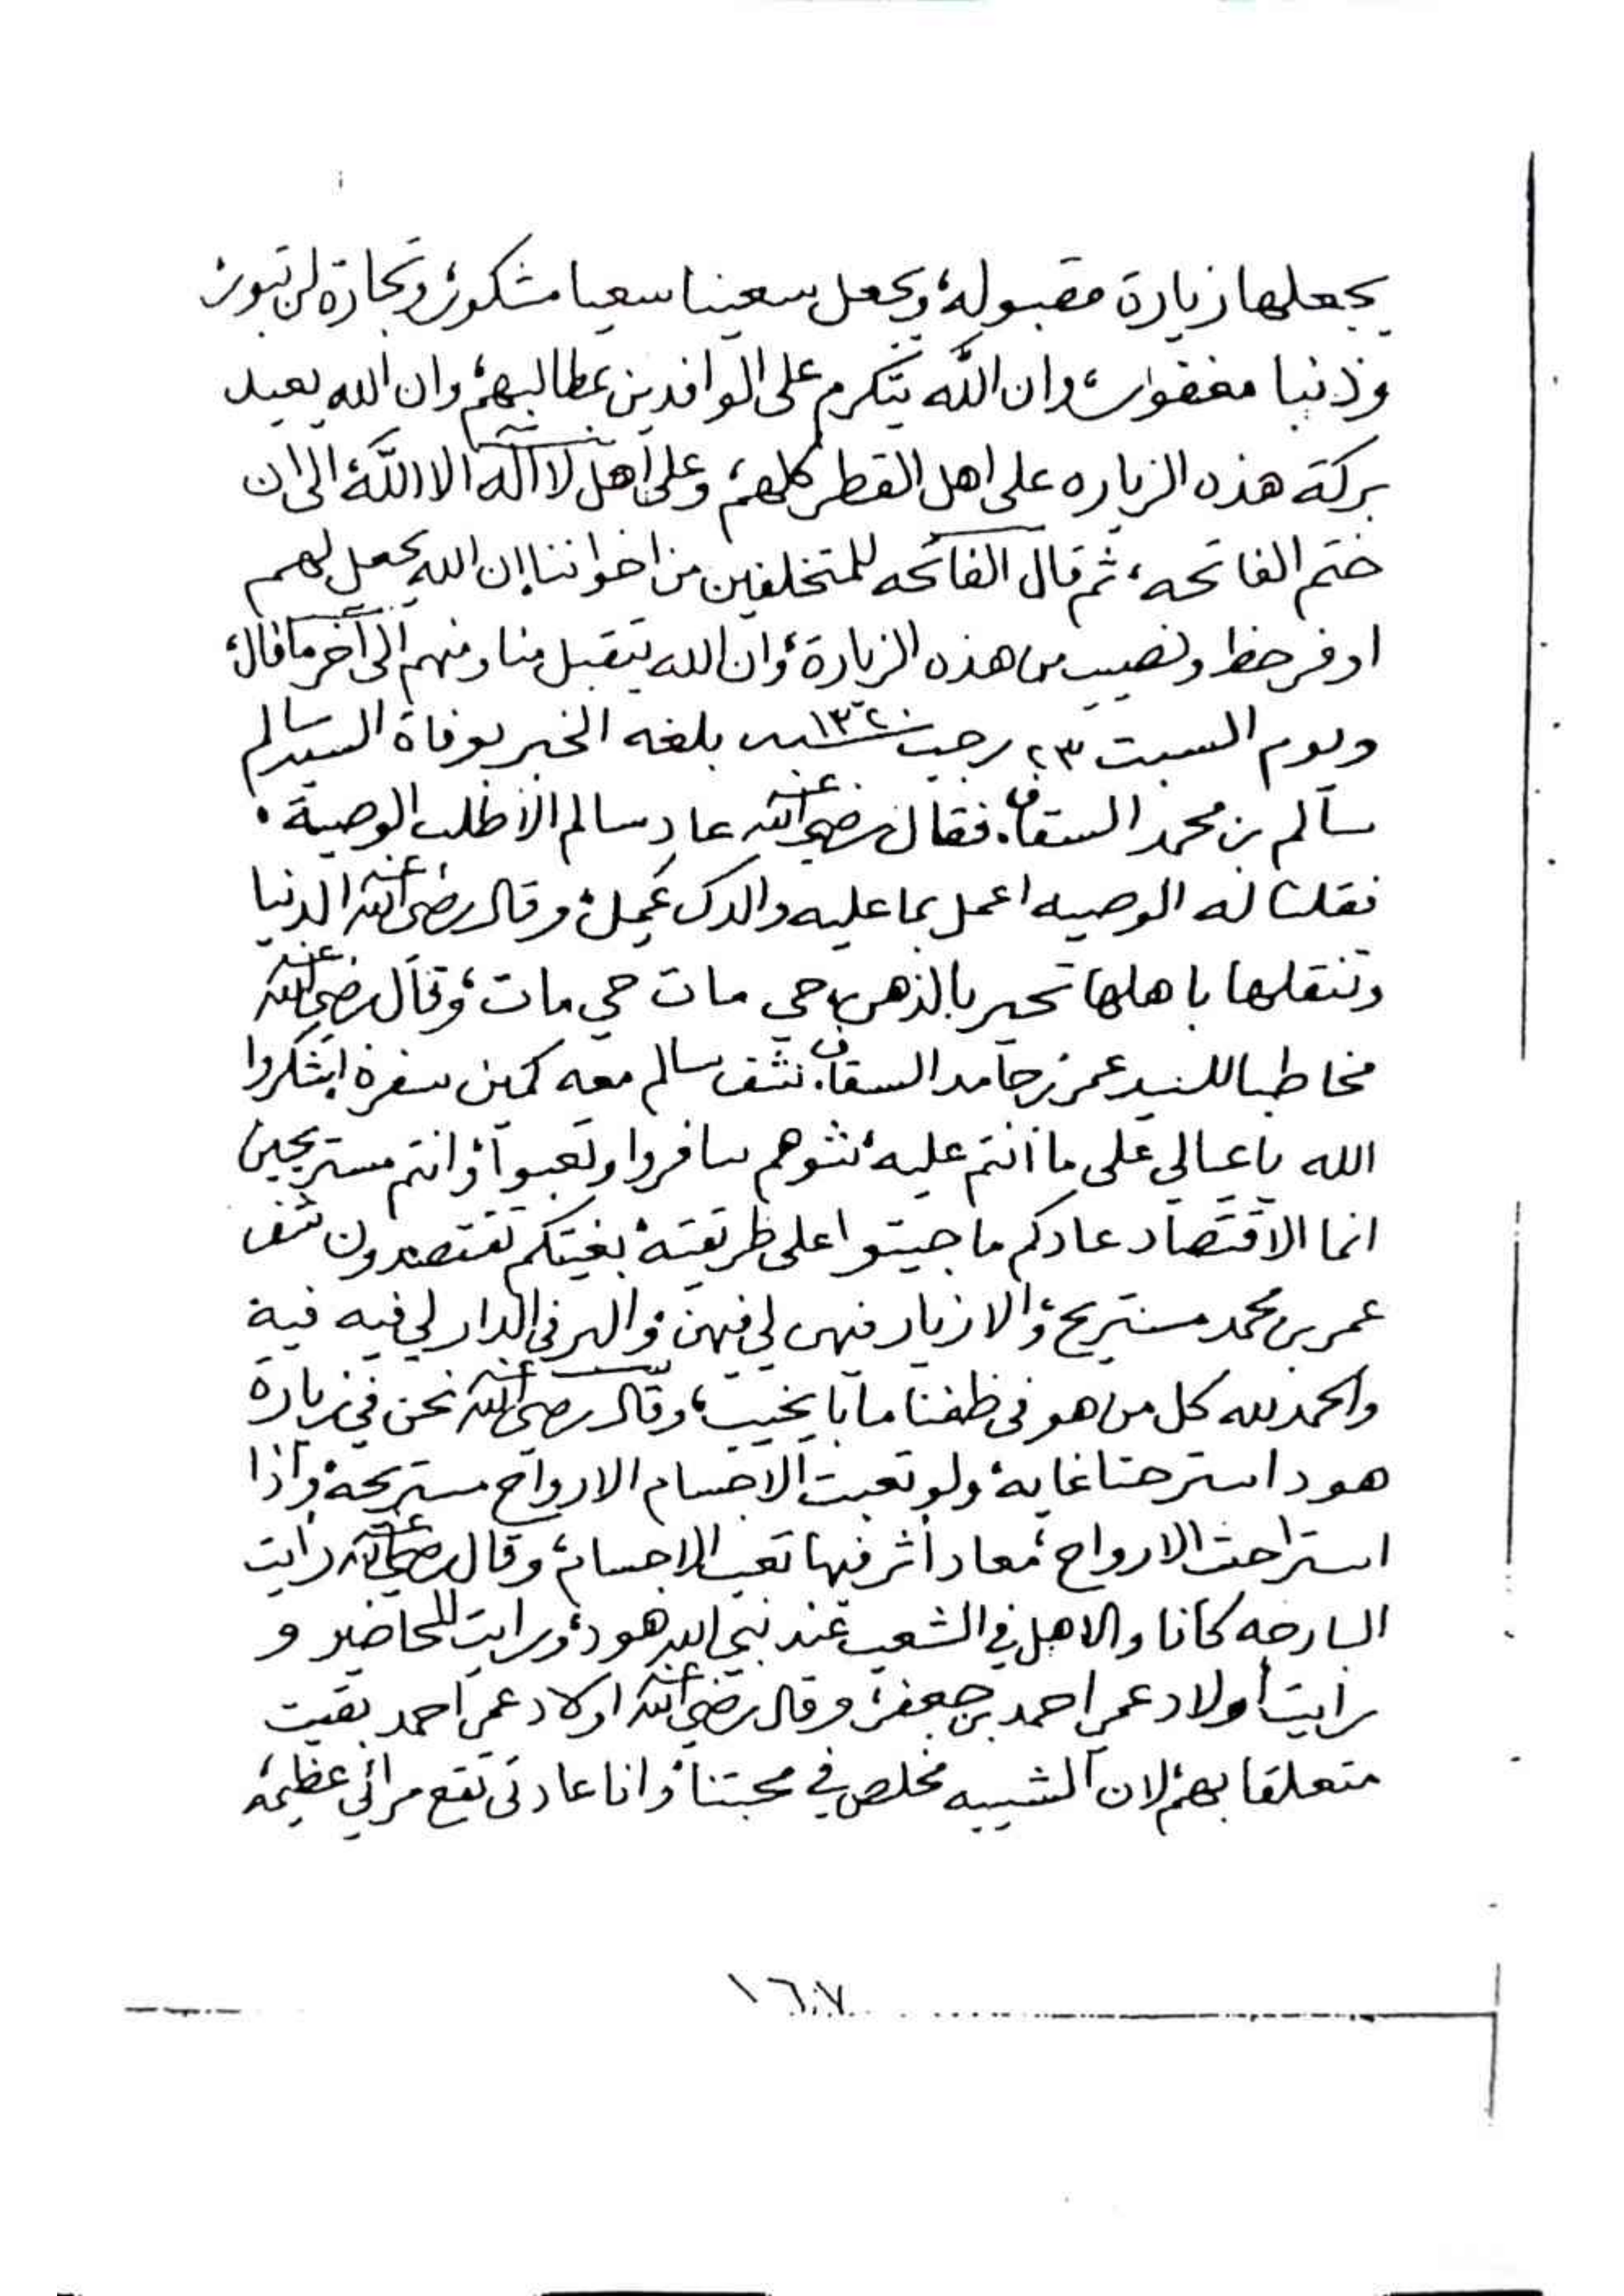 يجعلها زيارة مقبوله، ويجعل سعينا سعيا مشكور، وتجارة لن تبور،
وذنبا مغفور، وان الله يتكرم على الوافدين بمطالبهم، وان الله يعيد
بركة هذه الزياره على اهل القطر كلهم، وعلى اهل لا اله الا الله، الى ان
ختم الفاتحه، ثم قال الفاتحه للمتخلفين من اخواننا إن الله يجعل لهم
اوفر حظ ونصيب من هذه الزيارة، وان الله يتقبل منا ومنهم الى آخر ما قال،
ويوم السبت ٢٣ رجب سنة ١٣٢٠ بلغه الخبر بوفاة السيد سالم
سالم بن محمد السقاف، فقال رضي الله عنه عاد سالم الا طلب الوصية،
فقلنا له الوصيه اعمل بما عليه والدك عمل، وقال رضي الله عنه الدنيا
وتنقلها باهلها تحير بالذهن، حي مات حي مات، وقال رضي الله عنه
مخاطبا للسيد عمر بن حامد السقاف، شف سالم معه كمين سفره اشكروا
الله يا عيالي على ما أنتم عليه، شوهم سافروا وتعبوا، وانتم مستريحين
انما الاقتصاد عادكم ما جيتوا على طريقته، بغيتكم تقتصدون شف
عمر بن محمد مستريح، والا زيار منهن لي فيهن، والبر في الدار لي فيه فيه
والحمد لله كل من هو في ظفنا ما با يخيب، وقال رضي الله عنه نحن في زيارة
هود استرحنا غايه، ولو تعبت الاجسام الارواح مستريحة، واذا
استراحت الارواح، معاد أثر فيها تعب الاجسام، وقال رضي الله عنه رأيت
البارحه كانا والاهل في الشعب عند نبي الله هود، ورايت المحاضير و
رايت أولاد عمر احمد بن جعفر، وقال رضي الله عنه اولاد عمر احمد بقيت
متعلقا بهم، لان الشيبه مخلص في محبتنا، وانا عادتي تقع مرائي عظيمة،
١٦٧